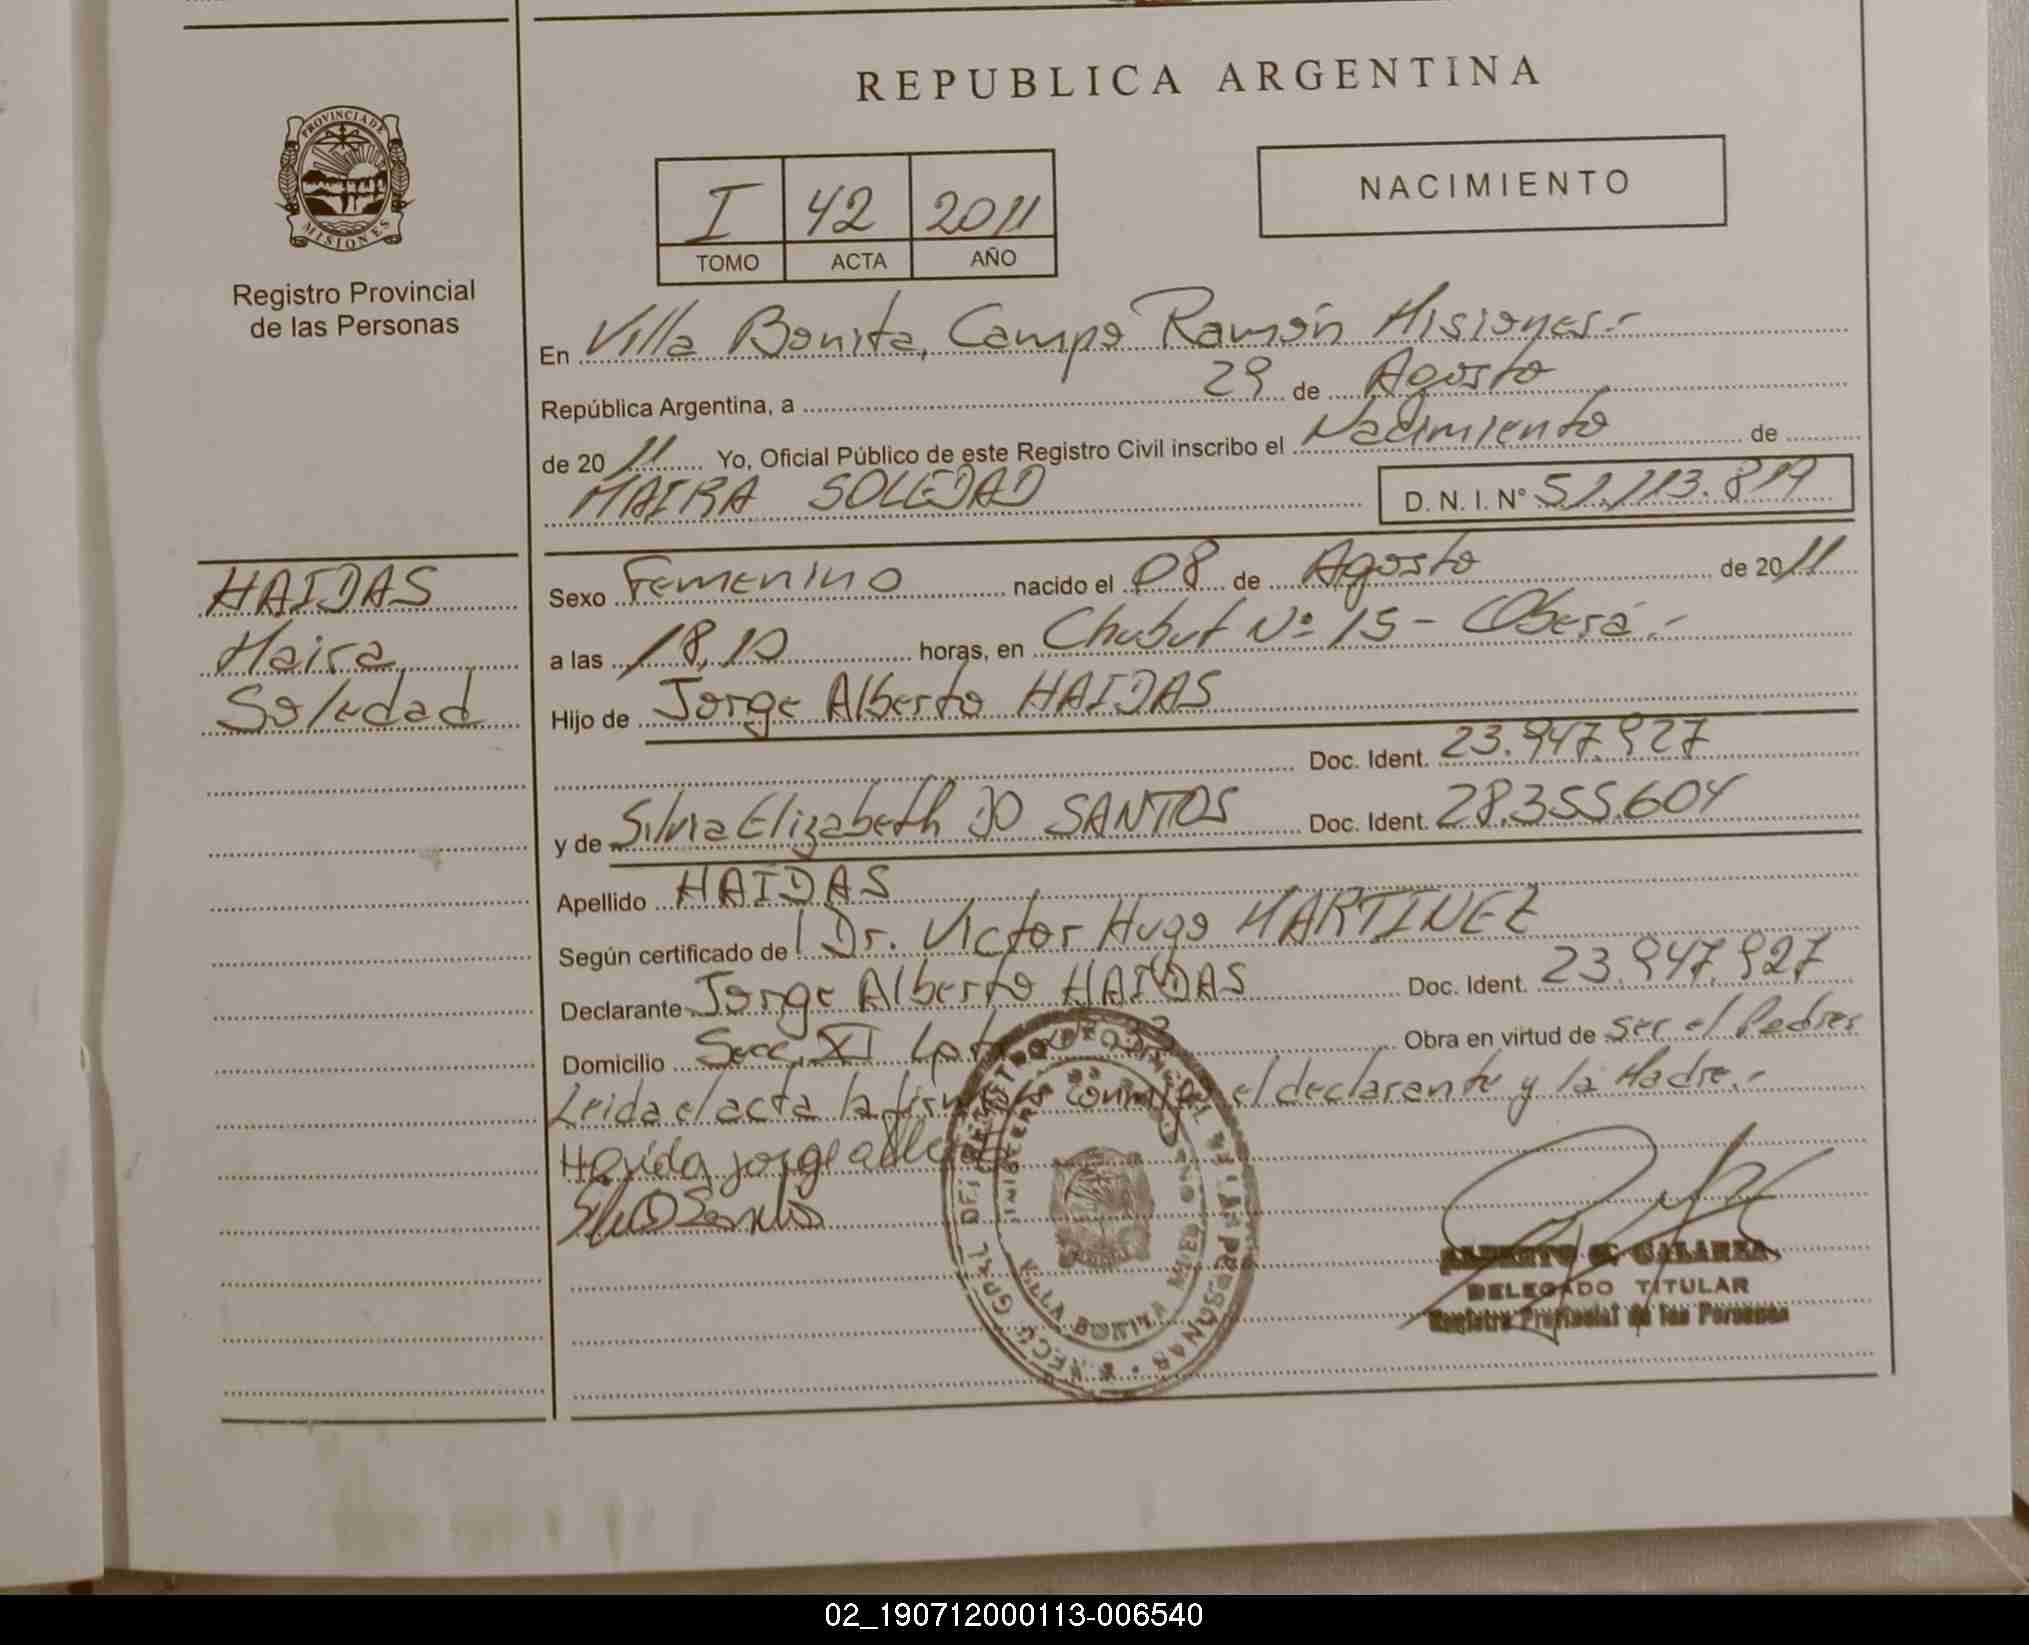 REPUBLICA ARGENTINA
PROVINCIA DE
MISIONES
Registro Provincial
de las Personas
I 42 2011
TOMO ACTA AÑO
NACIMIENTO
En Villa Bonita, Campo Ramón Misiones.-
República Argentina, a 29 de Agosto
de 2011 Yo, Oficial Público de este Registro Civil inscribo el Nacimiento de
MAIRA SOLEDAD D. N. I. N° 51.113.819
HAIDAS
Maira
Soledad
Sexo Femenino nacido el 08 de Agosto de 2011
a las 18,10 horas, en Chubut Nº 15 - Oberá.-
Hijo de Jorge Alberto HAIDAS
Doc. Ident. 23.947.927
y de Silvia Elizabeth DO SANTOS Doc. Ident. 28.355.604
Apellido HAIDAS
Según certificado de Dr. Victor Hugo MARTINEZ
Declarante Jorge Alberto HAIDAS Doc. Ident. 23.947.927
Domicilio Secc. XI Lote Obra en virtud de ser el Padres
Leida el acta la firman conmigo el declarante y la Madre.-
jorge
VILLA BONITA
DELEGADO TITULAR
Registro Provincial de las Personas
02_190712000113-006540